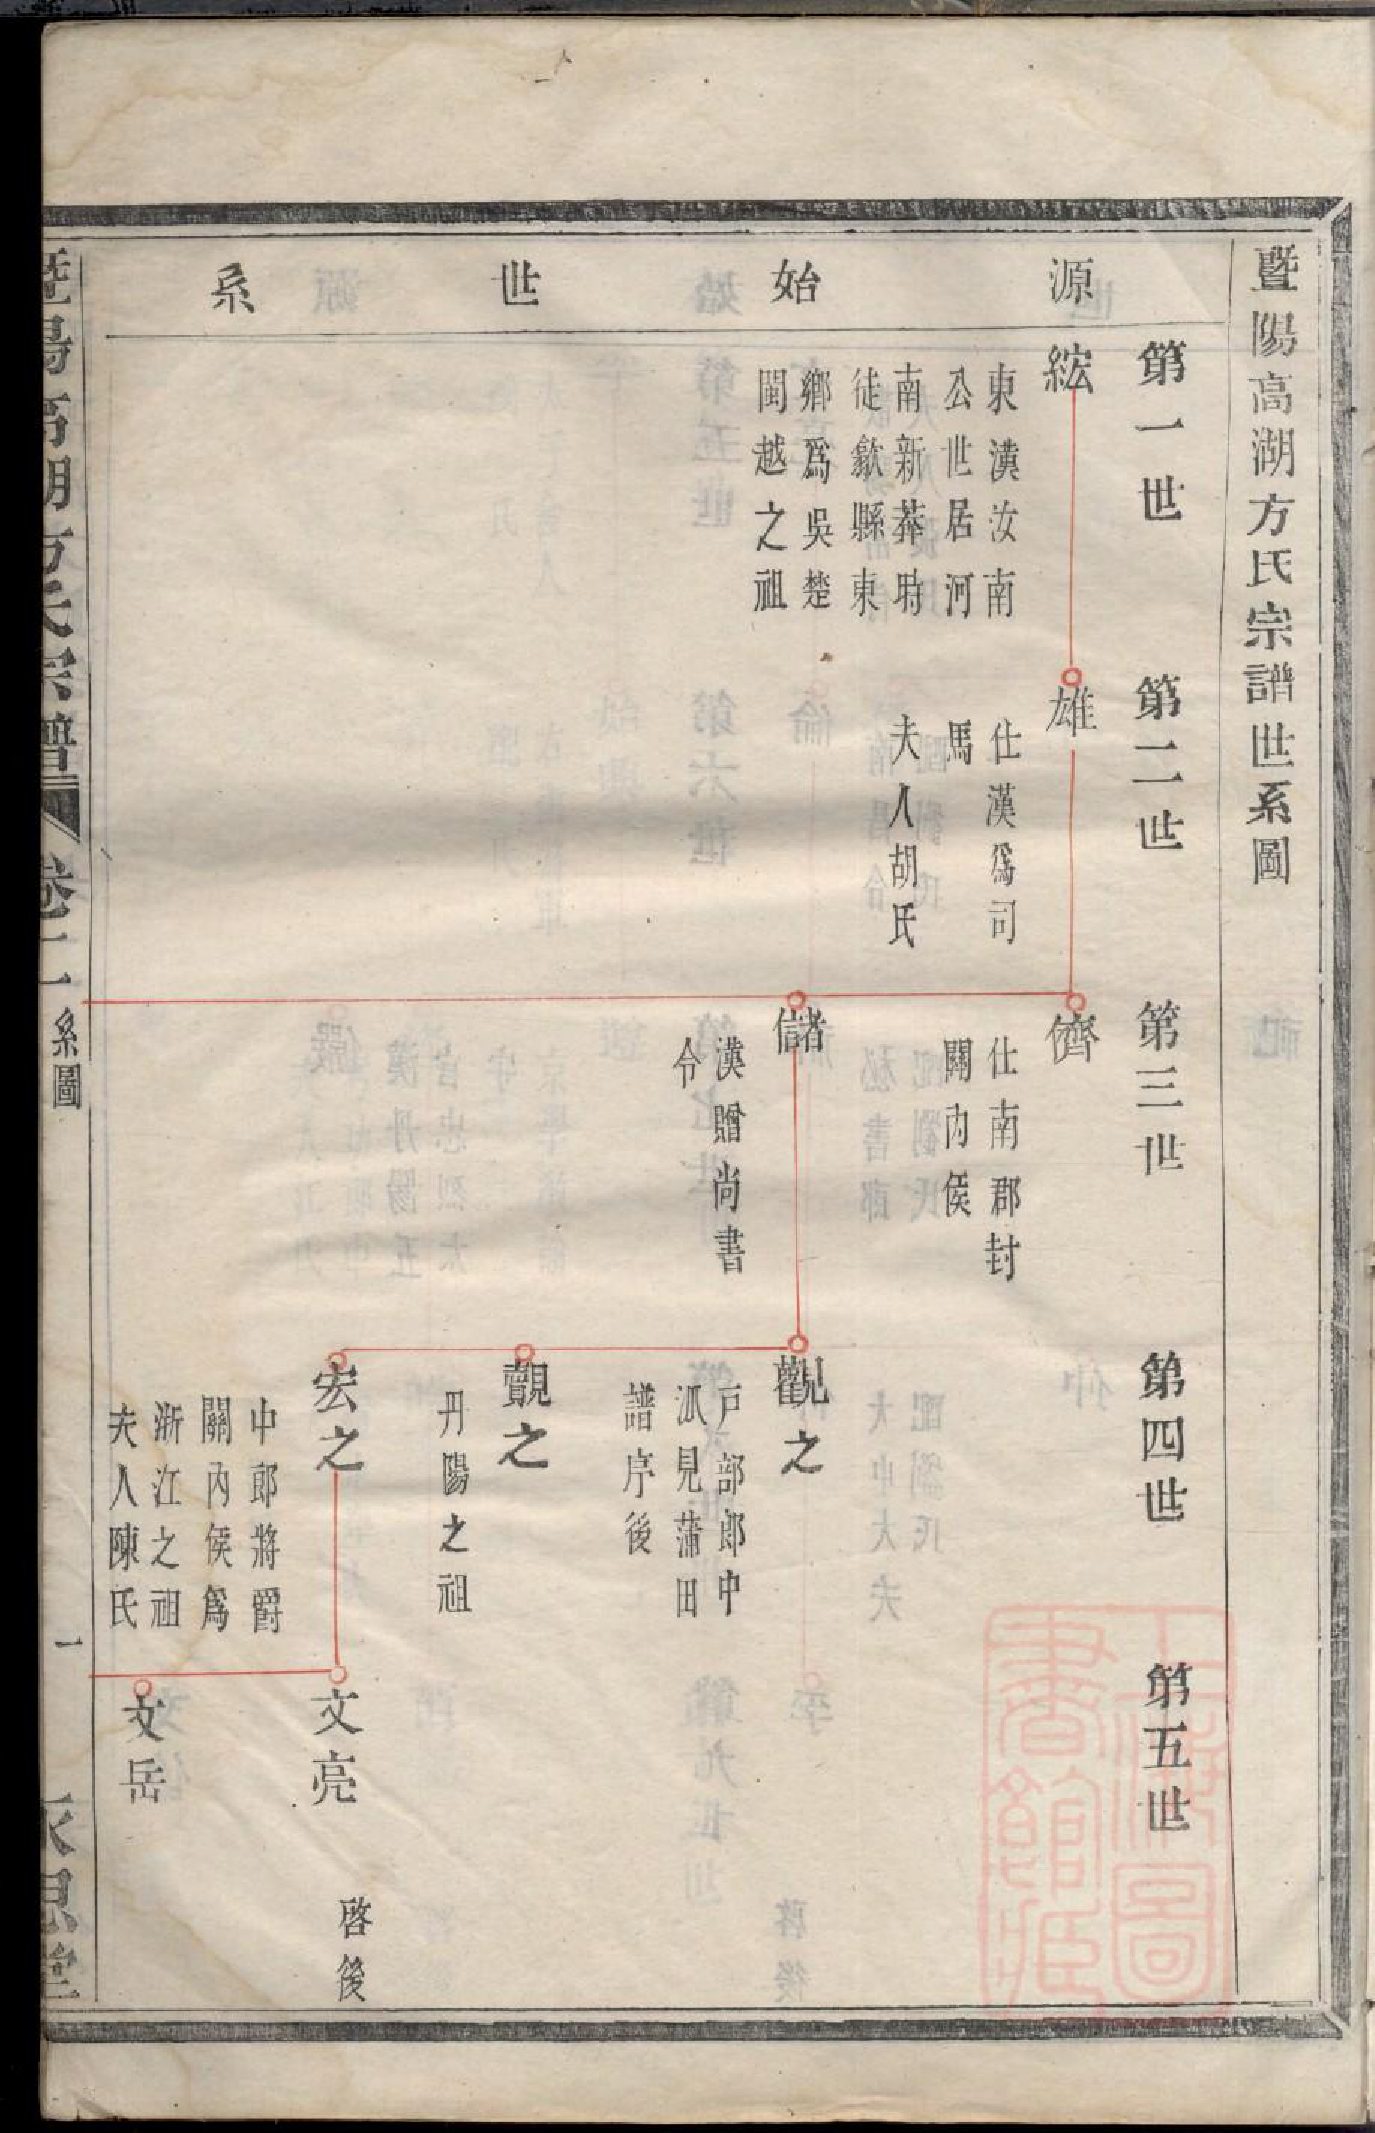 暨陽高湖方氏宗譜世系圖
源始世系
第一世
第二世
第三世
第四世
第五世
紘
東漢汝南
公世居河
南新莽時
徒歙縣東
鄉爲吳楚
閩越之祖
雄
仕漢爲司
馬
夫人胡氏
儕
仕南郡封
關內侯
儲
漢贈尚書
令
觀之
戶部郎中
派見蒲田
譜序後
覿之
丹陽之祖
宏之
中郎將爵
關內侯爲
浙江之祖
夫人陳氏
文亮
啓後
文岳
暨陽高湖方氏宗譜
卷二
系圖
一
永思堂
上海圖書館藏